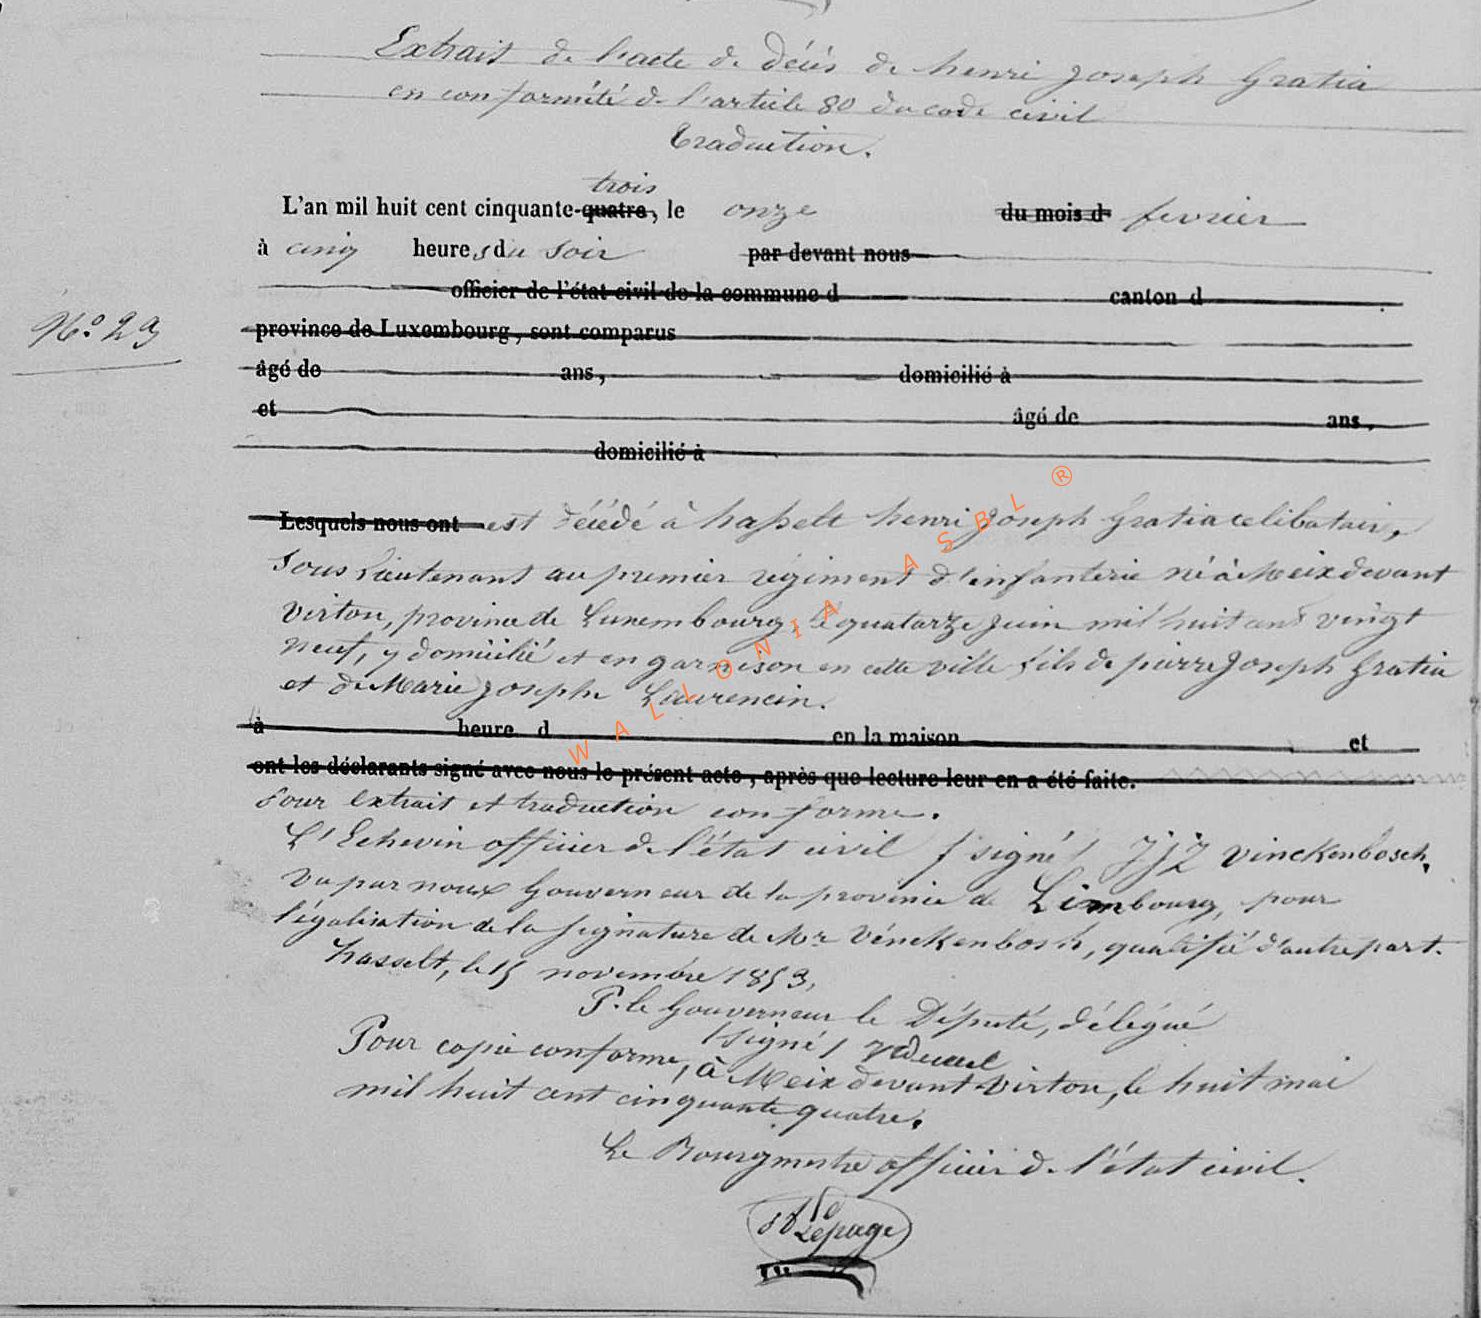 Extrait de l'acte de décés de henri Joseph Gratia
en conformité de l'article 80 du code civil
Traduction.
trois
L'an mil huit cent cinquante-quatre, le onze du mois d fevrier
à cinq heures du soir par devant nous
officier de l'état civil de la commune d canton d
N.° 29
province de Luxembourg, sont comparus
âgé de ans, domicilié à
et âgé de ans,
domicilié à
Lesquels nous ont est décédé à hasselt henri Joseph Gratia celibatair,
Sous Lieutenant au premier régiment d'infanterie né à Meix devant
Virton, province de Luxembourg, le quatorze Juin mil huit cent vingt
neuf, y domicilié et en garnison en cette ville fils de pierre Joseph Gratia
et de Marie Josephe Laurencin.
à heure d en la maison et
ont les déclarants signé avec nous le présent acte, après que lecture leur en a été faite.
Pour extrait et traduction conforme.
L'Echevin officier de l'état civil / signé / JJZ Vinckenbosch,
Vu par nous Gouverneur de la province de Limbourg, pour
légalisation de la signature de Mr Vénckenbosh, qualifié d'autre part.
hasselt, le 15 novembre 1853,
P. le Gouverneur le Député, délégué
/signé/
Pour copie conforme, à Meix devant Virton, le huit mai
mil huit cent cinquante quatre.
Le Bourgmestre officier de l'état civil.
Lepage
WALLONIA ASBL ®